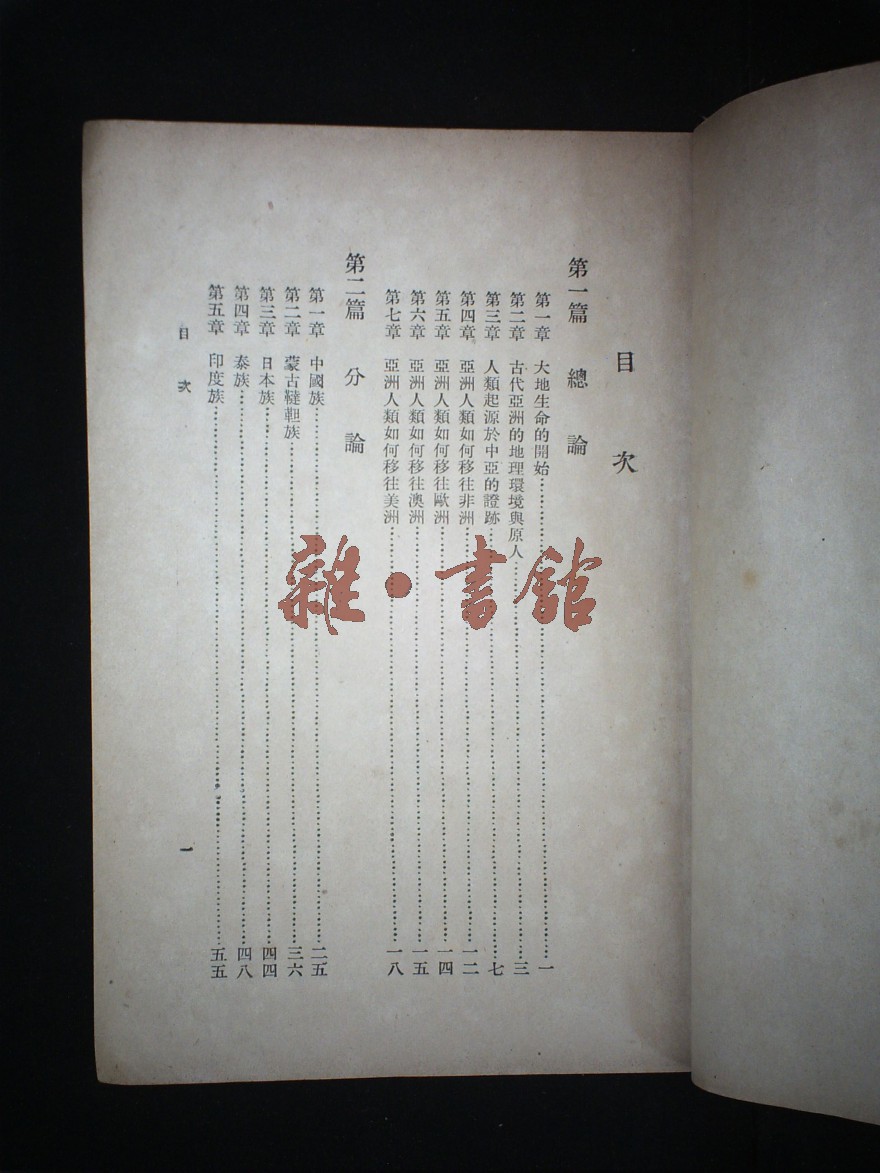 目次
第一篇 總論
第一章 大地生命的開始……一
第二章 古代亞洲的地理環境與原人……三
第三章 人類起源於中亞的證跡……七
第四章 亞洲人類如何移往非洲……一二
第五章 亞洲人類如何移往歐洲……一四
第六章 亞洲人類如何移往澳洲……一五
第七章 亞洲人類如何移往美洲……一八
第二篇 分論
第一章 中國族……二五
第二章 蒙古韃靼族……三六
第三章 日本族……四四
第四章 泰族……四八
第五章 印度族……五五
目次 一
雜·書館